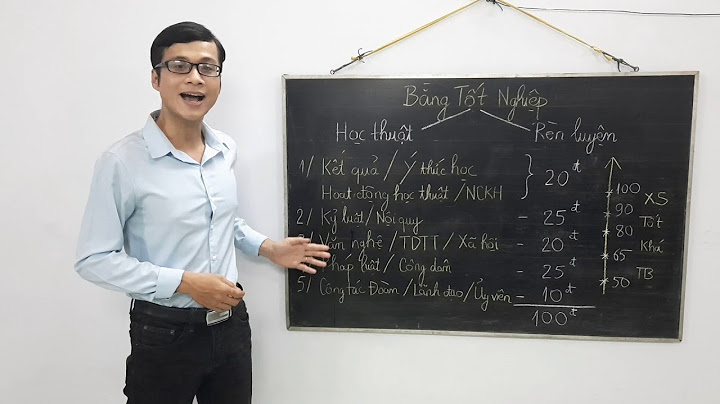 Bằng Tốt Nghiệp
Học thuật Rèn luyện
1/ Kết quả / Ý thức học
Hoạt động học thuật / NCKH } 20đ
2/ Kỷ luật / Nội quy - 25đ
Văn nghệ / TDTT / Xã hội - 20đ
Pháp luật / Công dân - 25đ
5/ Công tác Đoàn / Lãnh đạo / Ủy viên - 10đ
100đ
100 XS
90
Tốt
80
Khá
65
TB
50